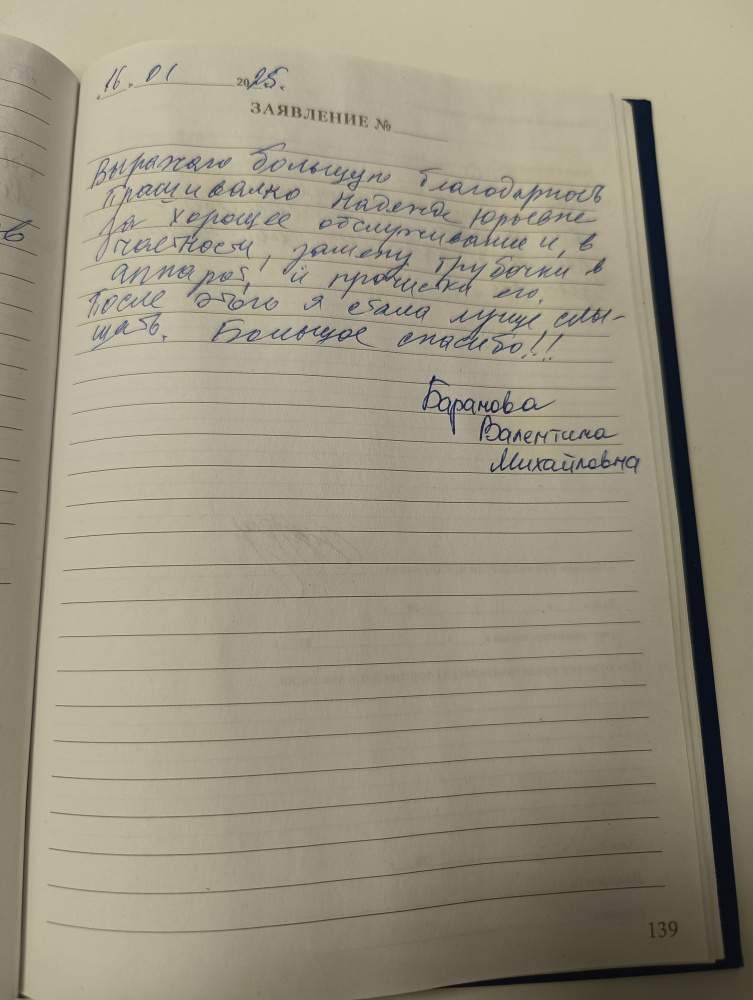 „16" 01 2025.
ЗАЯВЛЕНИЕ №
Выражаю большую благодарность
Надежде Юрьевне
за хорошее обслуживание и, в
частности, замену трубочки в
аппарат, и прочистка его.
После этого я стала лучше слы-
шать. Большое спасибо!!!
Баранова
Валентина
Михайловна
139